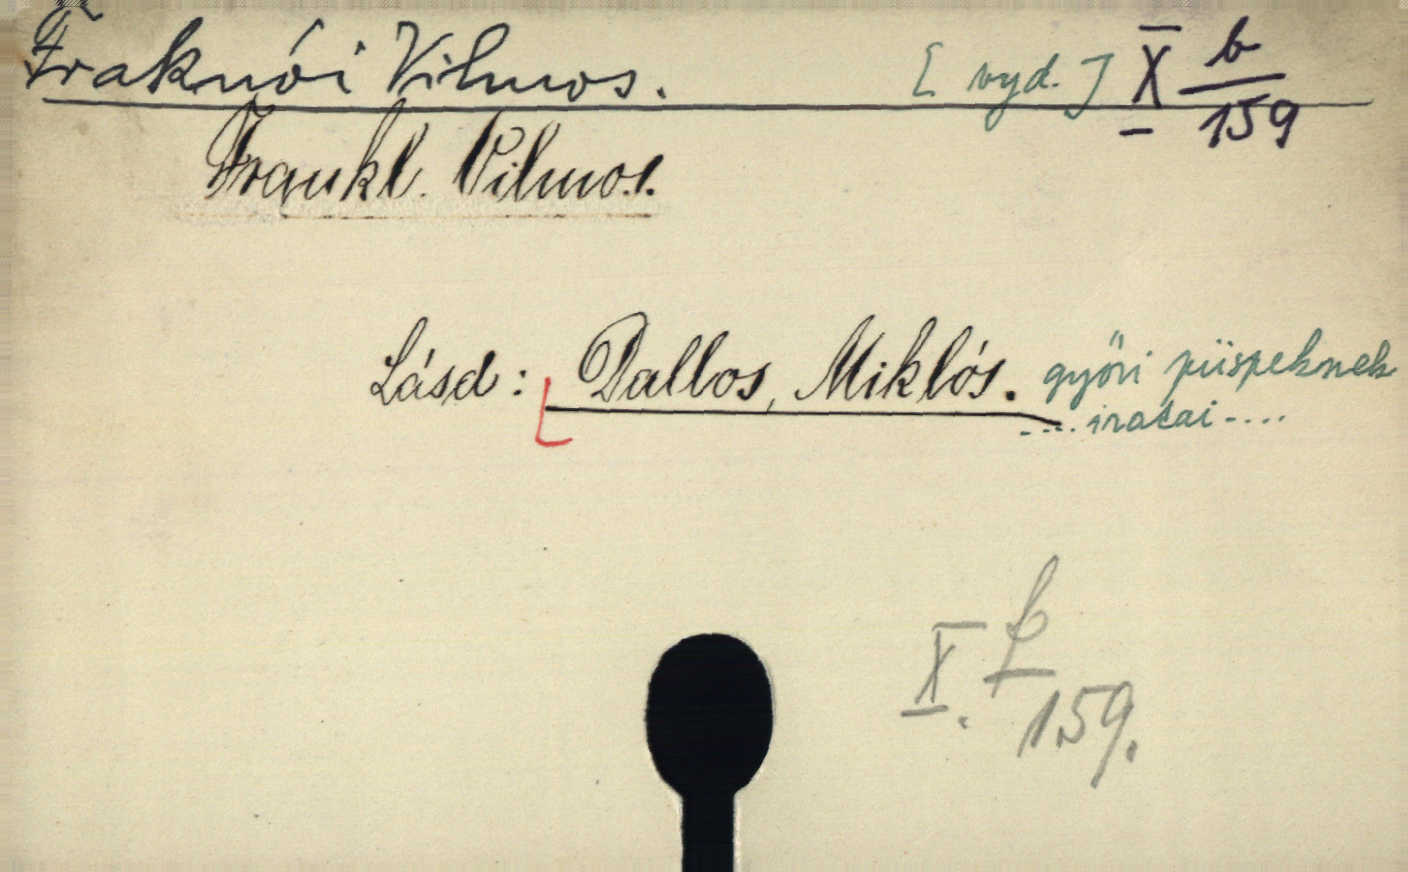 Fraknói Vilmos. [vyd.] X b/159
Frankl. Vilmos.
Lásd: Dallos, Miklós. győri püspeknek
.... iratai ....
X. b/159.